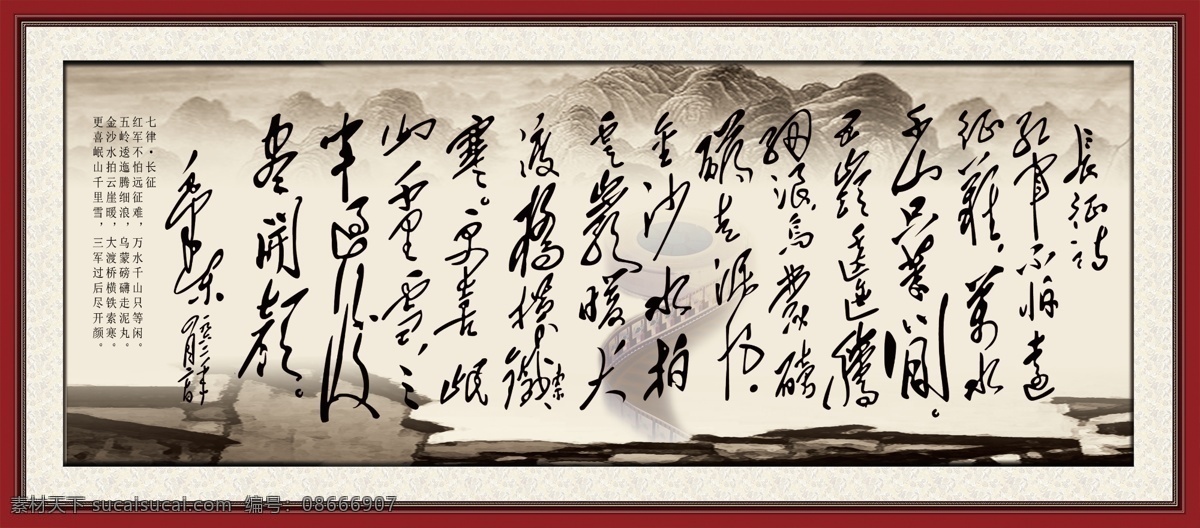 長征詩
红軍不怕遠
征難，萬水
千山只等閒。
五嶺逶迤騰
細浪，烏蒙磅
礴走泥丸。
金沙水拍
雲巖暖，大
渡橋橫鐵索
寒。更喜岷
山千里雪，三
軍過後
盡開顏。
毛澤東
七律·长征
红军不怕远征难，万水千山只等闲。
五岭逶迤腾细浪，乌蒙磅礴走泥丸。
金沙水拍云崖暖，大渡桥横铁索寒。
更喜岷山千里雪，三军过后尽开颜。
素材天下 sucaisucai.com 编号：08666907